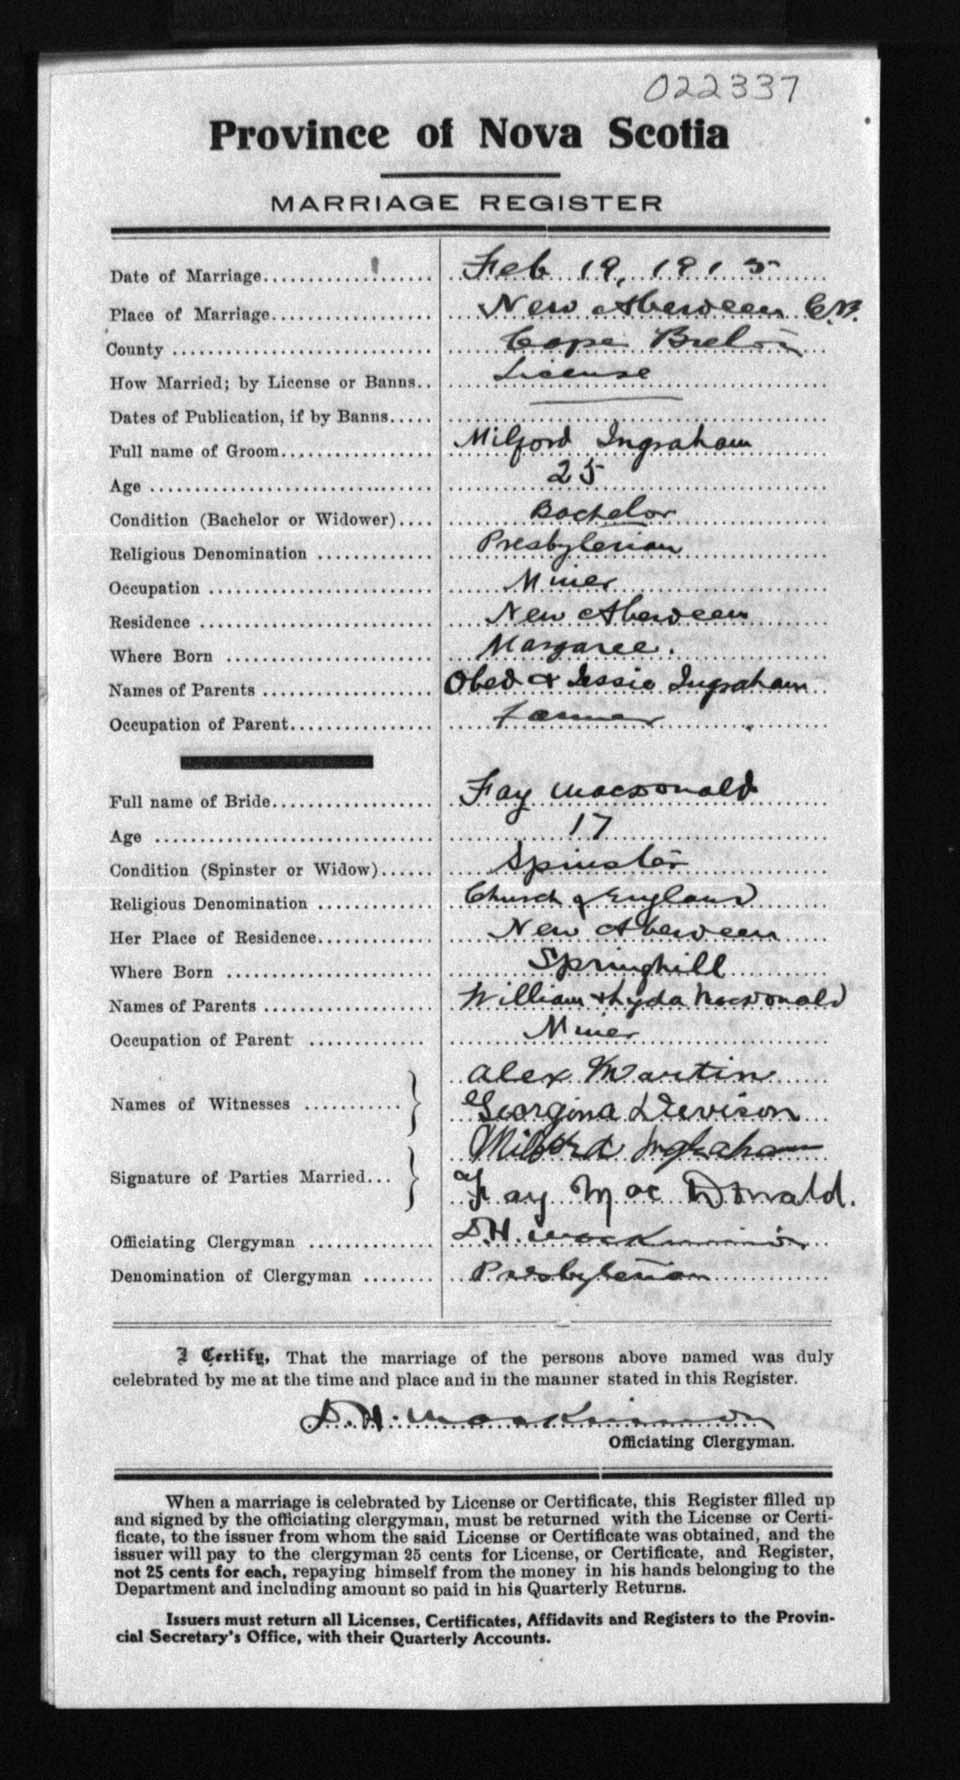 022337
Province of Nova Scotia
MARRIAGE REGISTER
Date of Marriage Feb 19, 1915
Place of Marriage New Aberdeen C.B.
County Cape Breton
How Married; by License or Banns License
Dates of Publication, if by Banns
Full name of Groom Milford Ingraham
Age 25
Condition (Bachelor or Widower) Bachelor
Religious Denomination Presbyterian
Occupation Miner
Residence New Aberdeen
Where Born Margaree.
Names of Parents Obed & Jessie Ingraham
Occupation of Parent Farmer
Full name of Bride Fay MacDonald
Age 17
Condition (Spinster or Widow) Spinster
Religious Denomination Church of England
Her Place of Residence New Aberdeen
Where Born Springhill
Names of Parents William & Lyda MacDonald
Occupation of Parent Miner
Names of Witnesses Alex Martin
Georgina Devison
Signature of Parties Married Milford Ingraham
Fay Mac Donald.
Officiating Clergyman D.H. MacKinnon
Denomination of Clergyman Presbyterian
I Certify, That the marriage of the persons above named was duly
celebrated by me at the time and place and in the manner stated in this Register.
D.H. MacKinnon
Officiating Clergyman.
When a marriage is celebrated by License or Certificate, this Register filled up
and signed by the officiating clergyman, must be returned with the License or Certi-
ficate, to the issuer from whom the said License or Certificate was obtained, and the
issuer will pay to the clergyman 25 cents for License, or Certificate, and Register,
not 25 cents for each, repaying himself from the money in his hands belonging to the
Department and including amount so paid in his Quarterly Returns.
Issuers must return all Licenses, Certificates, Affidavits and Registers to the Provin-
cial Secretary's Office, with their Quarterly Accounts.